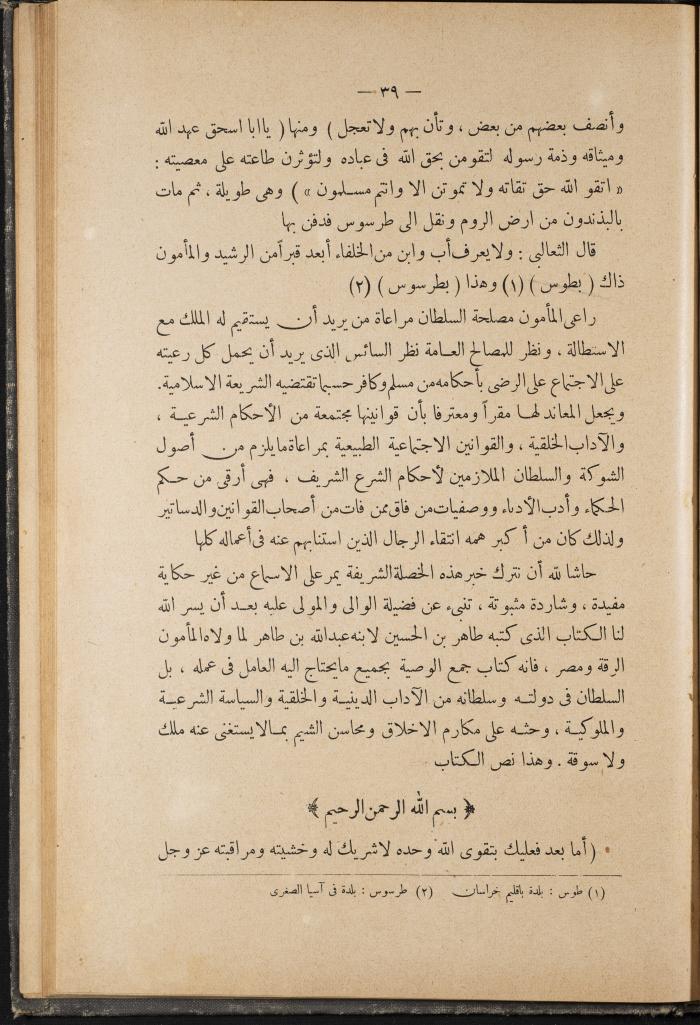 — ٣٩ —
وأنصف بعضهم من بعض ، وتأن بهم ولا تعجل ) ومنها ( يا ابا اسحق عهد الله
وميثاقه وذمة رسوله لتقومن بحق الله فى عباده ولتؤثرن طاعته على معصيته :
« اتقو الله حق تقاته ولا تموتن الا وانتم مسلمون » ) وهى طويلة ، ثم مات
بالبذندون من ارض الروم ونقل الى طرسوس فدفن بها
قال الثعالبى : ولا يعرف أب وابن من الخلفاء أبعد قبراً من الرشيد والمأمون
ذاك ( بطوس ) (١) وهذا ( بطرسوس ) (٢)
راعى المأمون مصلحة السلطان مراعاة من يريد أن يستقيم له الملك مع
الاستطالة ، ونظر للمصالح العامة نظر السائس الذى يريد أن يحمل كل رعيته
على الاجتماع على الرضى بأحكامه من مسلم وكافر حسبما تقتضيه الشريعة الاسلامية .
ويجعل المعاند لها مقراً ومعترفا بأن قوانينها مجتمعة من الأحكام الشرعية ،
والآداب الخلقية ، والقوانين الاجتماعية الطبيعية بمراعاة ما يلزم من أصول
الشوكة والسلطان الملازمين لأحكام الشرع الشريف ، فهى أرقى من حكم
الحكماء وأدب الأدباء ووصفيات من فاق ممن فات من أصحاب القوانين والدساتير
ولذلك كان من أكبر همه انتقاء الرجال الذين استنابهم عنه فى أعماله كلها
حاشا لله أن نترك خبر هذه الخصلة الشريفة يمر على الاسماع من غير حكاية
مفيدة ، وشاردة مثبوتة ، تنبىء عن فضيلة الوالى والمولى عليه بعد أن يسر الله
لنا الكتاب الذى كتبه طاهر بن الحسين لابنه عبدالله بن طاهر لما ولاه المأمون
الرقة ومصر ، فانه كتاب جمع الوصية بجميع ما يحتاج اليه العامل فى عمله ، بل
السلطان فى دولته وسلطانه من الآداب الدينية والخلقية والسياسة الشرعية
والملوكية ، وحثه على مكارم الاخلاق ومحاسن الشيم بما لا يستغنى عنه ملك
ولا سوقة . وهذا نص الكتاب
﴿ بسم الله الرحمن الرحيم ﴾
( أما بعد فعليك بتقوى الله وحده لا شريك له وخشيته ومراقبته عز وجل
(١) طوس : بلدة باقليم خراسان (٢) طرسوس : بلدة فى آسيا الصغرى